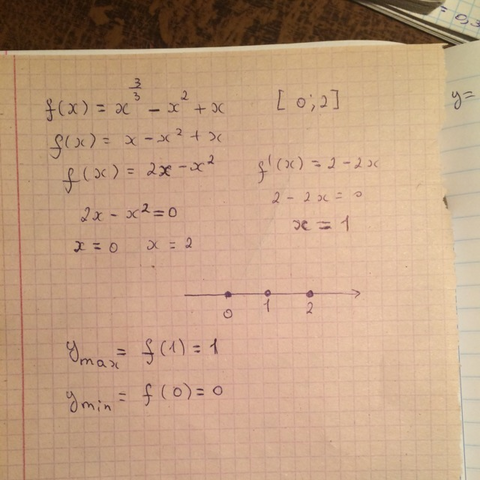 = 0,3
y=
f(x) = x^(3/3) − x² + x [0;2]
f(x) = x − x² + x
f(x) = 2x − x² f'(x) = 2 − 2x
2 − 2x = 0
2x − x² = 0 x = 1
x = 0 x = 2
0 1 2
y_max = f(1) = 1
y_min = f(0) = 0